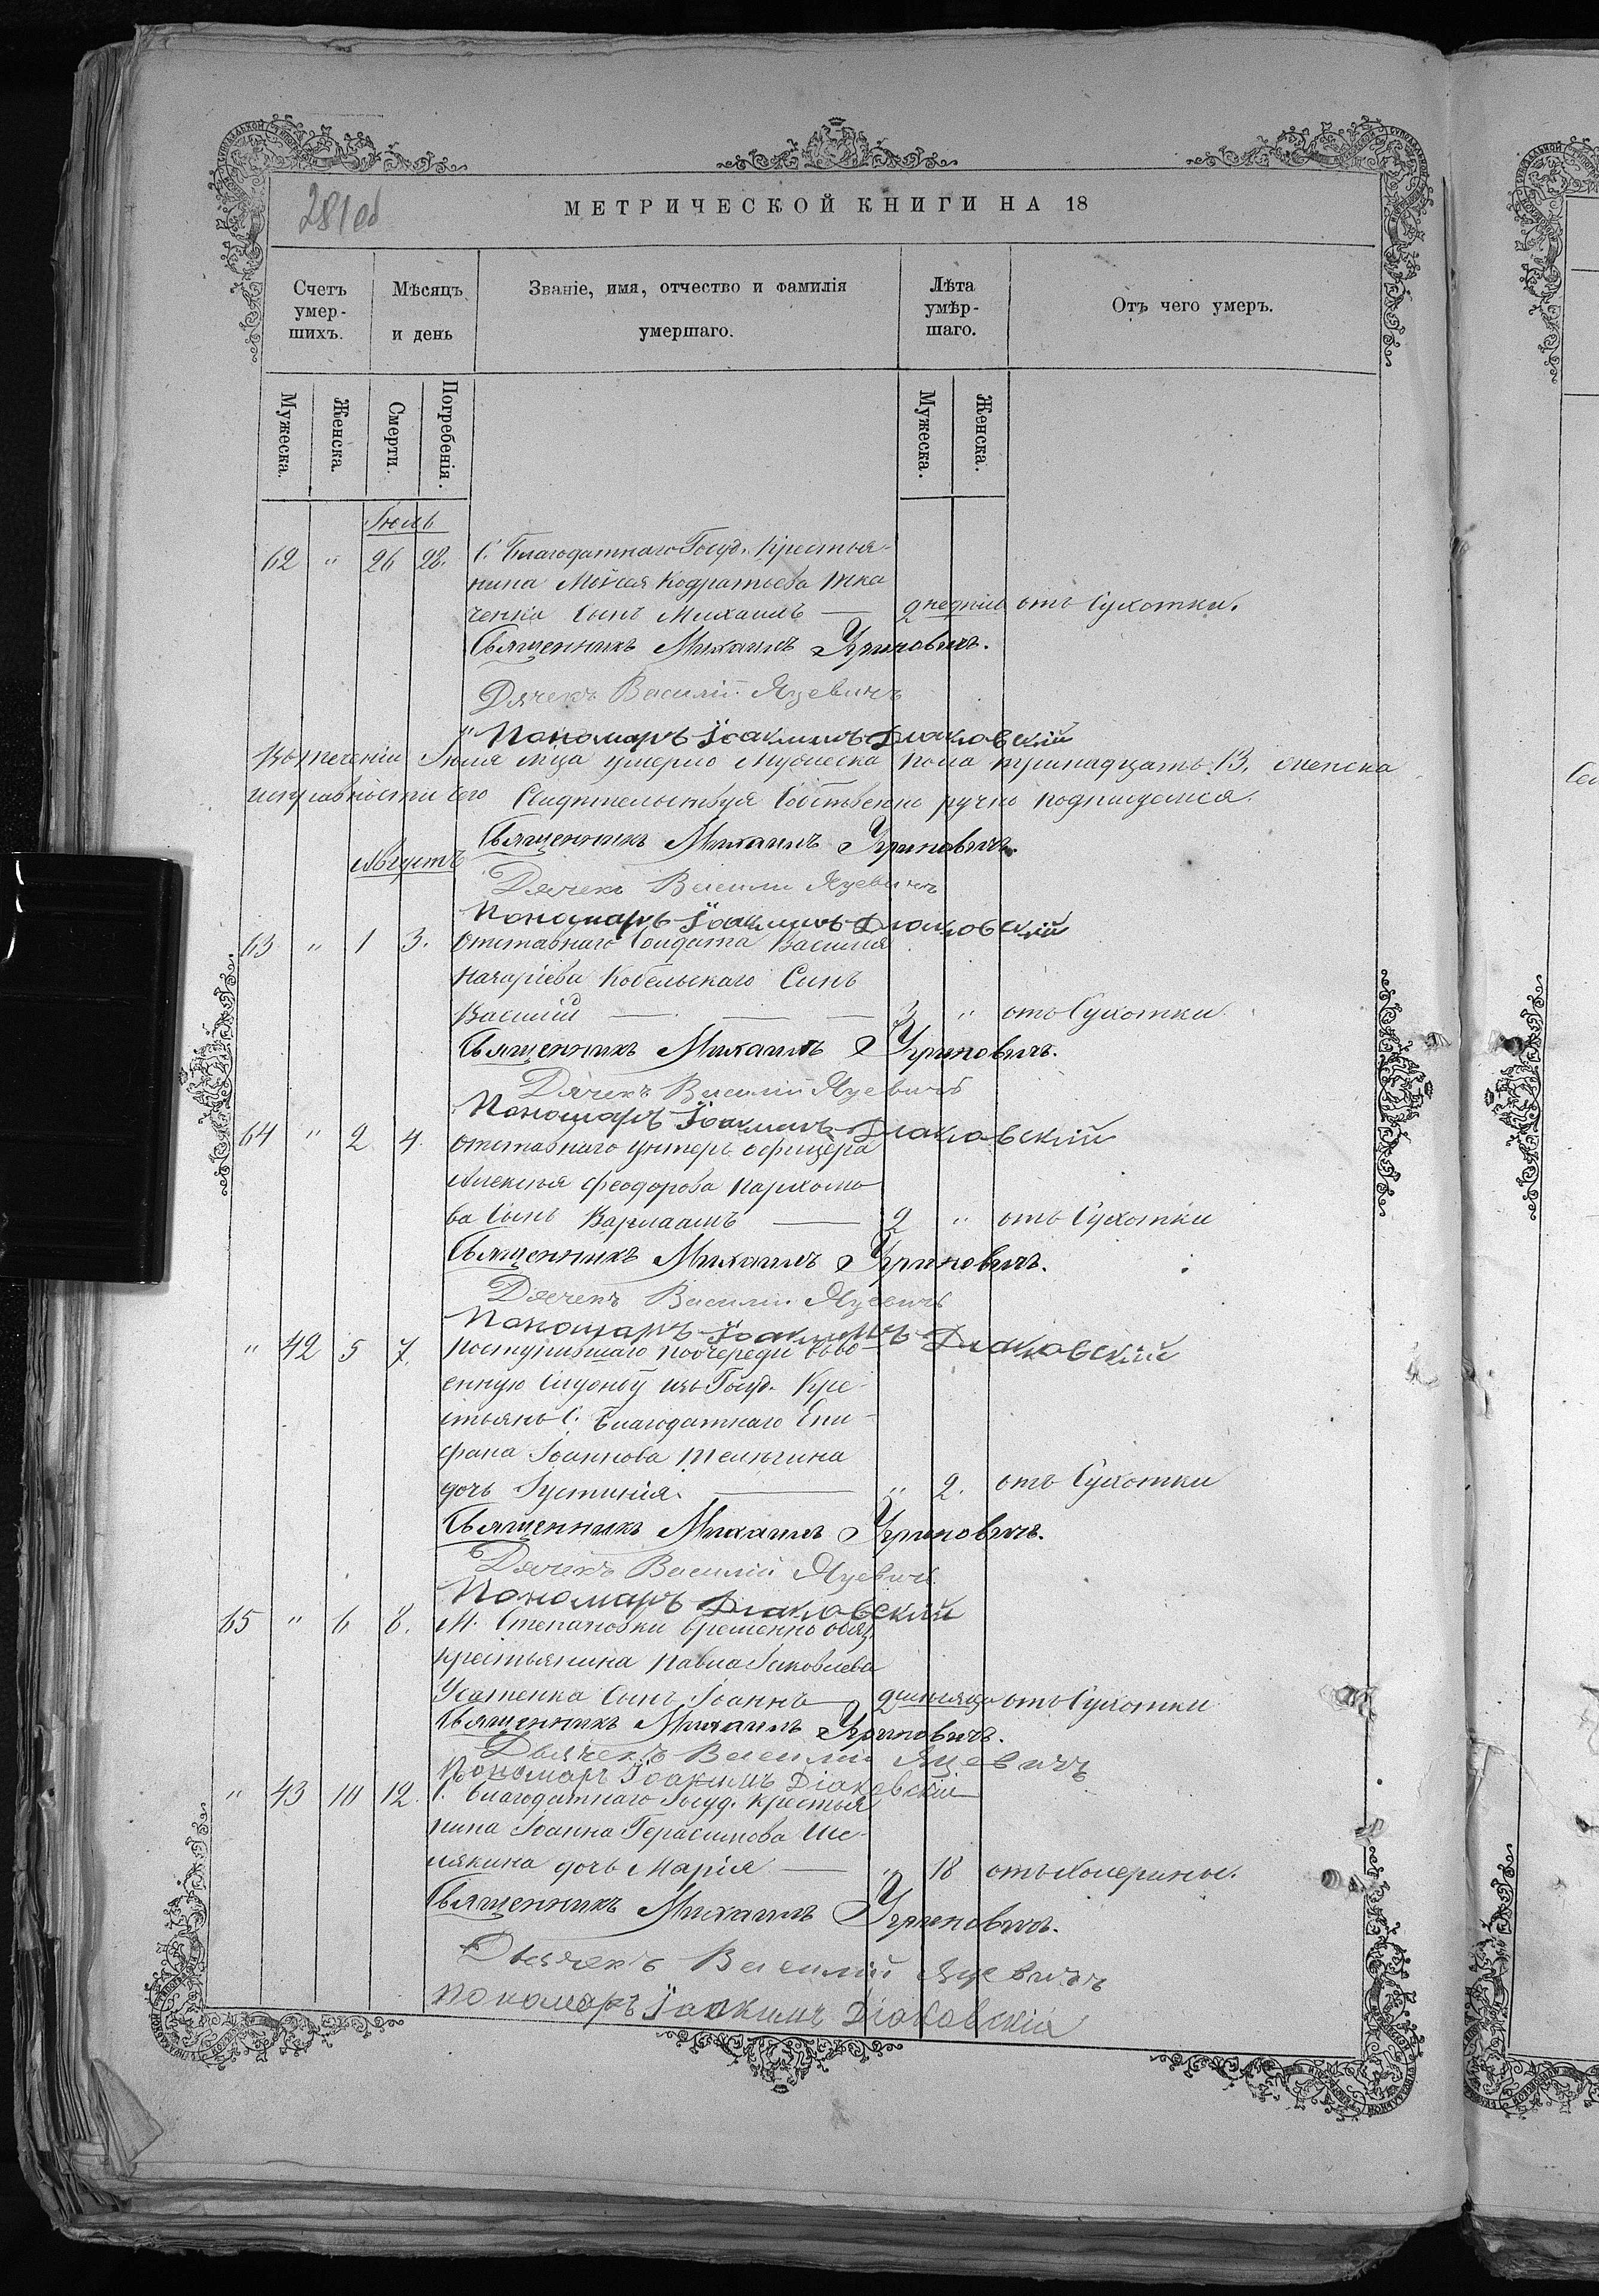 281 об
МЕТРИЧЕСКОЙ КНИГИ НА 18
Счетъ умер- шихъ.
Мѣсяцъ и день
Званіе, имя, отчество и фамилія умершаго.
Лѣта умѣр- шаго.
Отъ чего умеръ.
Мужеска. Женска. Смерти. Погребенія. Мужеска. Женска.
Іюль
62 " 26 28. С. Благодатнаго Госуд. Крестья-
нина Моисея Кодратьева Тка
ченка сынъ Михаилъ — 2 недѣли отъ Сухотки.
Священникъ Михаилъ Угриновичъ.
Дячекъ Василій Яцевичъ
Пономаръ Іоакимъ Діаковскій
Въ теченіи Іюля мца умерло мужеска пола тринадцать 13, женска
исправности чего Свидѣтельствуя собственно ручно подписуемся.
Священникъ Михаилъ Угриновичъ.
Августъ
Дячекъ Василій Яцевичъ
Пономаръ Іоакимъ Діаковскій
63 " 1 3. Отставнаго Солдата Василія
Кобельскаго Сынъ
Василій — — — 3 " отъ Сухотки.
Священникъ Михаилъ Угриновичъ.
Дячекъ Василій Яцевичъ
Пономаръ Іоакимъ Діаковскій
64 " 2 4. Отставнаго унтеръ офицера
Алексѣя Феодорова Пархомо
ва Сынъ Варлаамъ — 2 " отъ Сухотки
Священникъ Михаилъ Угриновичъ.
Дячекъ Василій Яцевичъ
Пономаръ Іоакимъ Діаковскій
" 42 5 7. Поступившаго поочереди въ во
енную службу изъ Госуд. Кре-
стьянъ С. Благодатнаго Епи-
фана Іоаннова Телѣгина
дочь Іустинія. — " 2. отъ Сухотки
Священникъ Михаилъ Угриновичъ.
Дячекъ Василій Яцевичъ
Пономаръ Діаковскій
65 " 6 8. М. Степановки временно обяз.
крестьянина Павла Іаковлева
Усатенка Сынъ Іоаннъ — 2 мѣсяца отъ Сухотки
Священникъ Михаилъ Угриновичъ.
Дьячекъ Василій Яцевичъ
Пономаръ Іоакимъ Діаковскій
" 43 10 12. С. Благодатнаго Госуд. крестья
нина Іоанна Герасимова Ше-
лякина дочь Марія — " 18 отъ Холерины.
Священникъ Михаилъ Угриновичъ.
Дьячекъ Василій Яцевичъ
Пономаръ Іоакимъ Діаковскій